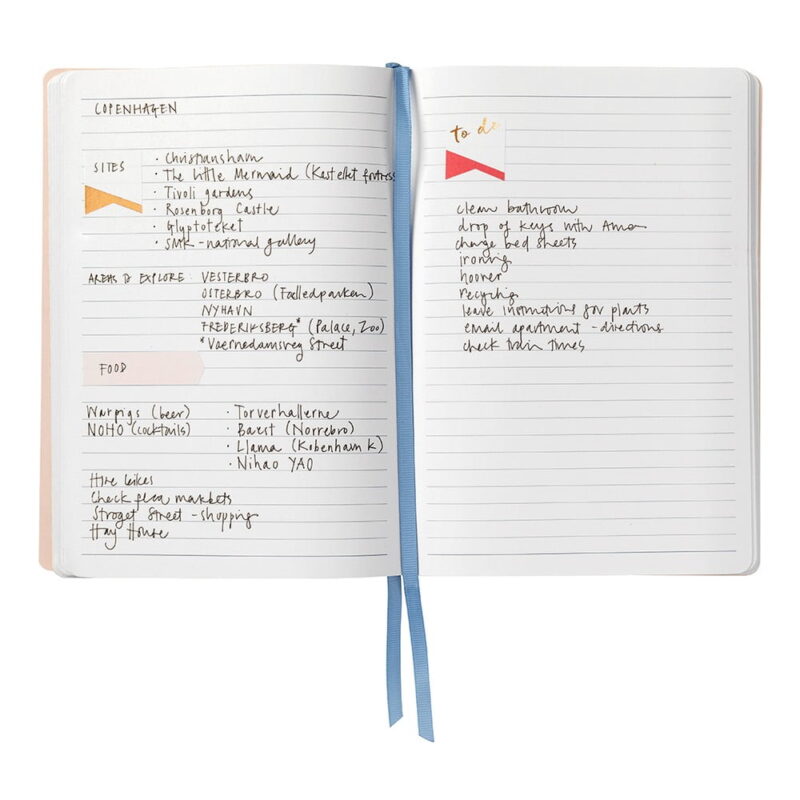 COPENHAGEN
SITES
· Christiansham
· The Little Mermaid (Kastellet fortress
· Tivoli gardens
· Rosenborg Castle
· Glyptoteket
· SMK - national gallery
AREAS TO EXPLORE: VESTERBRO
OSTERBRO (Faelledparken)
NYHAVN
FREDERIKSBERG* (Palace, Zoo)
*Vaernedamsveg Street
FOOD
Warpigs (beer)
NOHO (cocktails)
· Torverhallerne
· Baest (Norrebro)
· Llama (Kobenhavn K)
· Nihao YAO
Hire bikes
Check flea markets
Stroget Street - shopping
Hay House
to do
clean bathroom
drop of keys with Anna
change bed sheets
ironing
hoover
recycling
leave instructions for plants
email apartment - directions
check train times